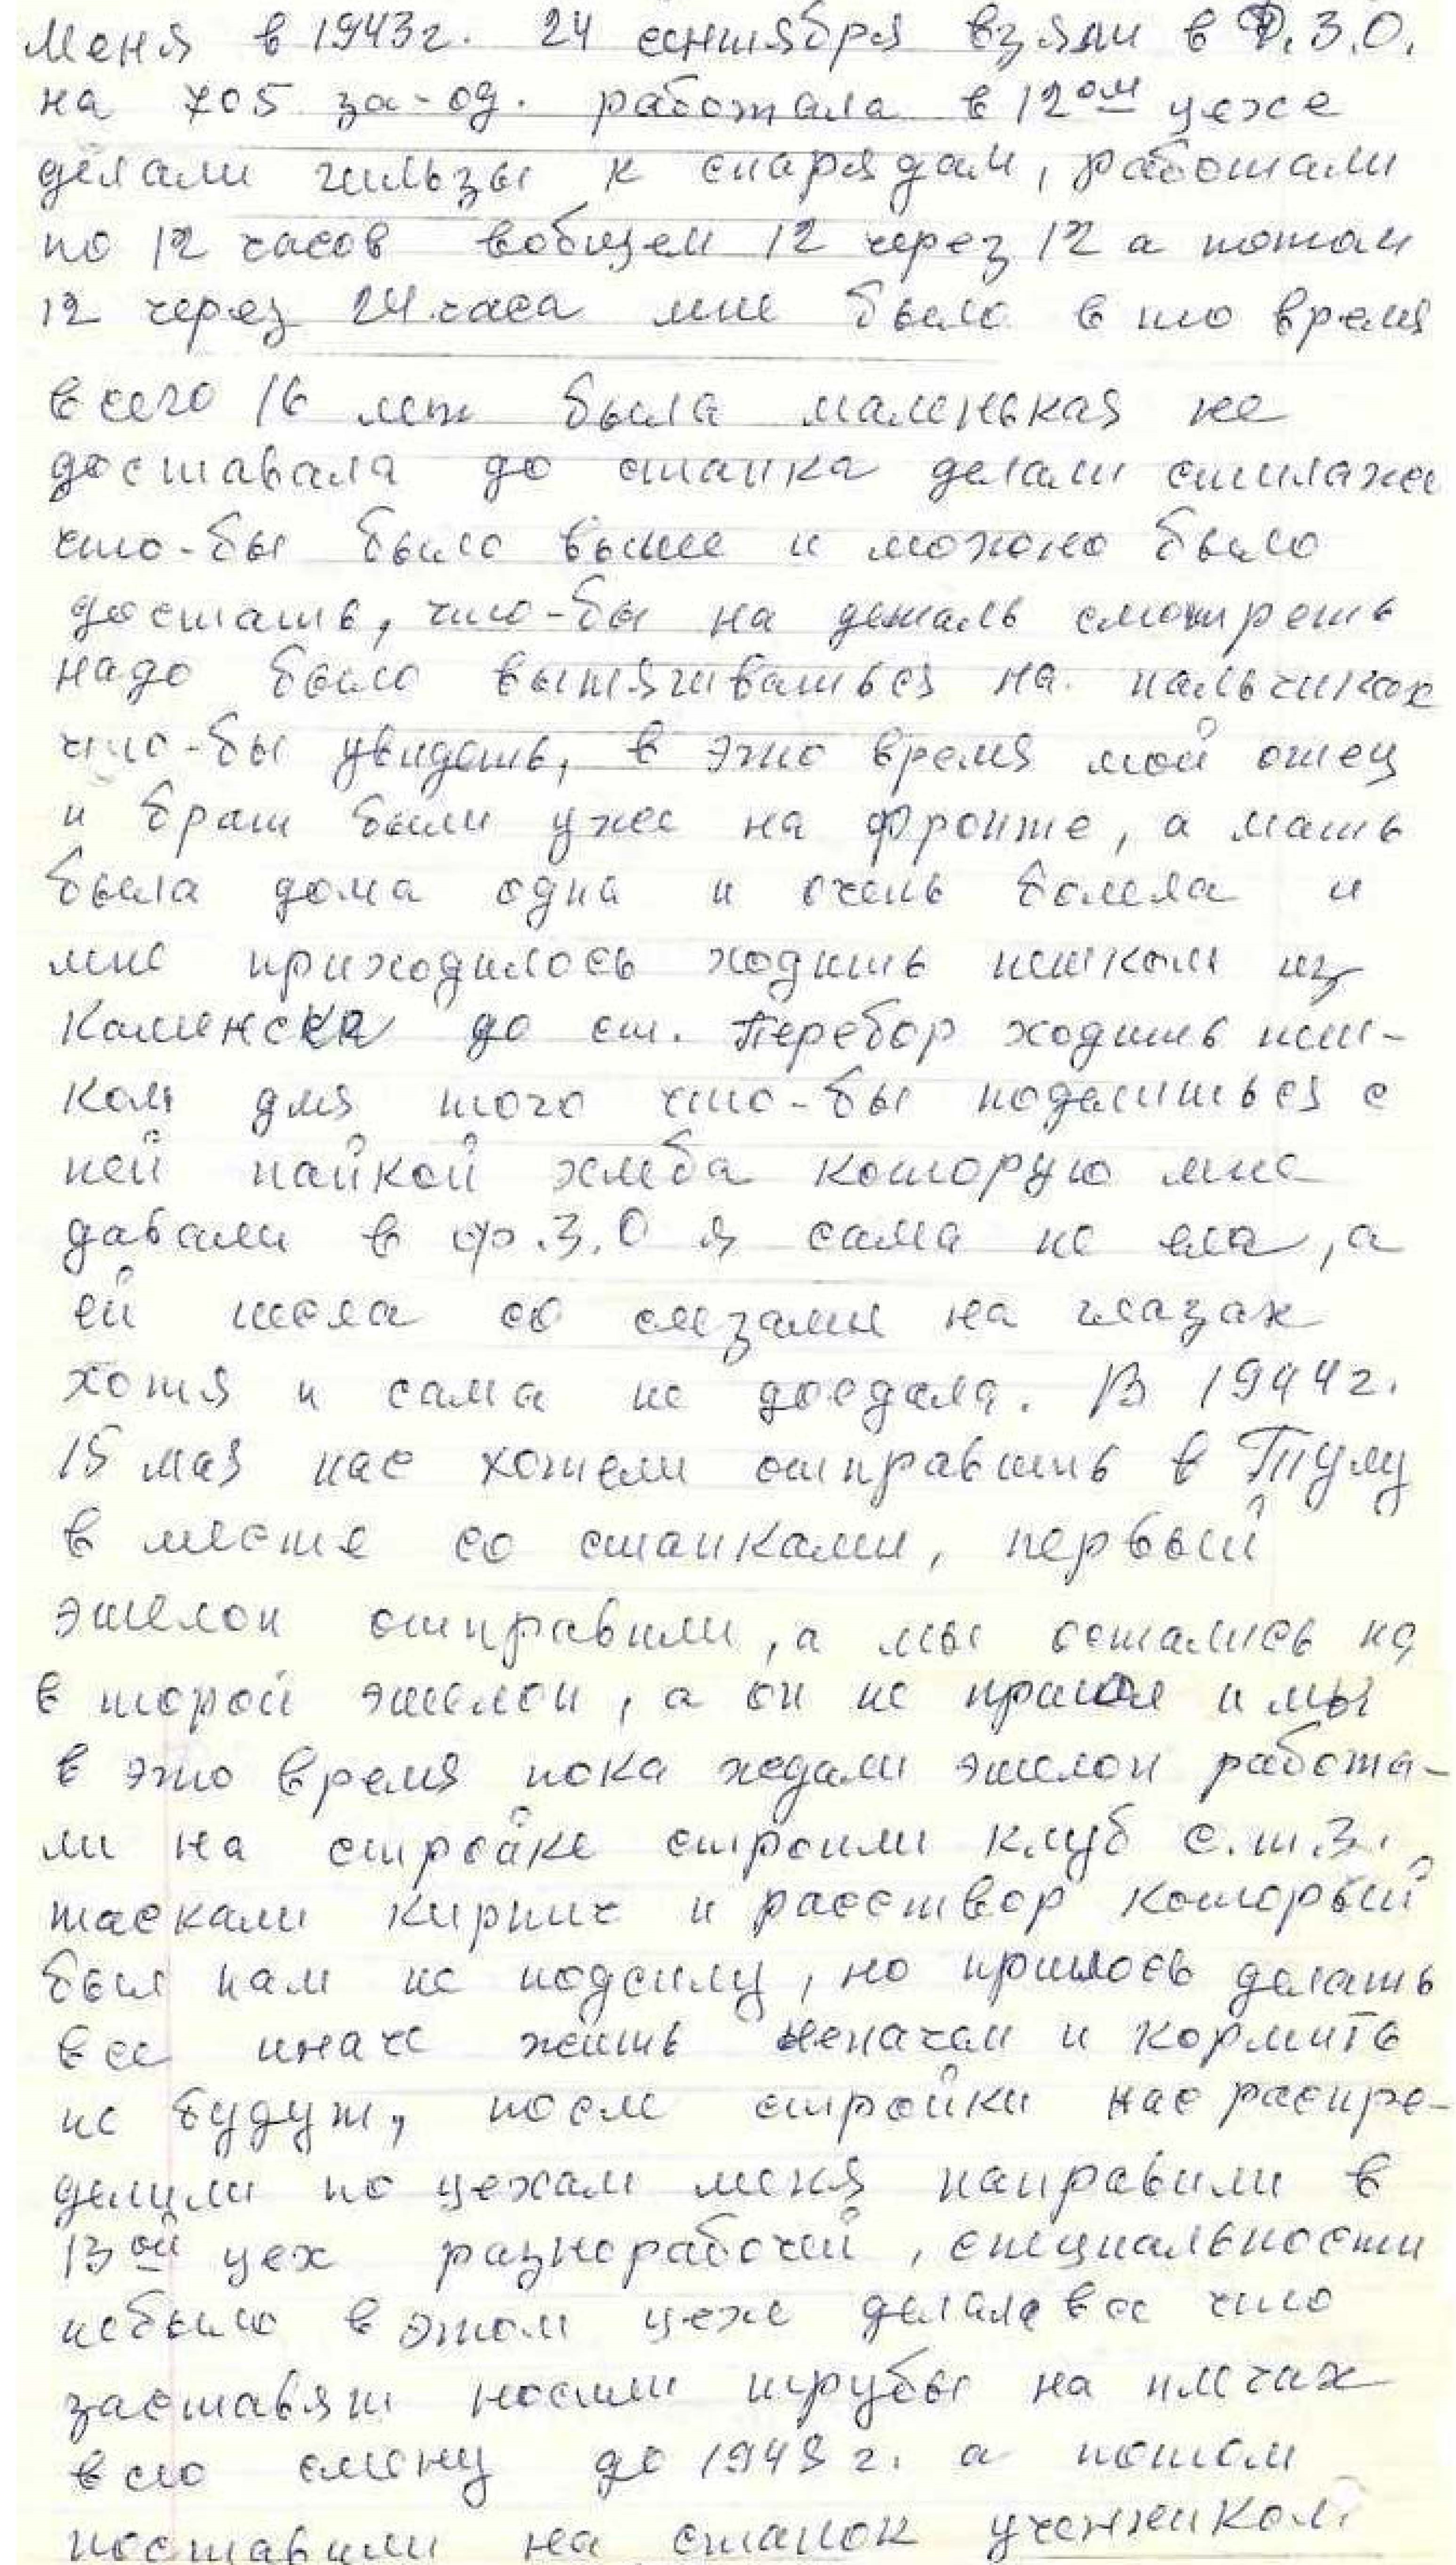 Меня в 1943г. 24 сентября взяли в Ф.З.О.
на 705 за-од. работала в 12ом цехе
делали гильзы к снарядам, работали
по 12 часов вобщем 12 через 12 а потом
12 через 24 часа мне было в то время
всего 16 лет была маленькая не
доставала до станка делали стилажи
что-бы было выше и можно было
достать, что-бы на деталь смотреть
надо было вытягиваться на пальчиках
что-бы увидать, в это время мой отец
и брат были уже на фронте, а мать
была дома одна и очень болела и
мне приходилось ходить пешком из
Каменска до ст. Перебор ходить пеш-
ком для того что-бы поделиться с
ней пайкой хлеба которую мне
давали в ф.З.О я сама не ела, а
ей несла со слезами на глазах
хотя и сама не доедала. В 1944г.
15 мая нас хотели отправить в Тулу
в месте со станками, первый
эшелон отправили, а мы остались на
в торой эшелон, а он не пришол и мы
в это время пока ждали эшелон работа-
ли на стройке строили клуб с.т.з.
таскали кирпич и расствор который
был нам не подсилу, но пришлось делать
все иначе жить неначем и кормить
не будут, после стройки нас распре-
делили по цехам меня направили в
13ой цех разнорабочей, специальности
небыло в этом цехе делала все что
заставят носили трубы на плечах
всю смену до 1945 г. а потом
поставили на станок учеником